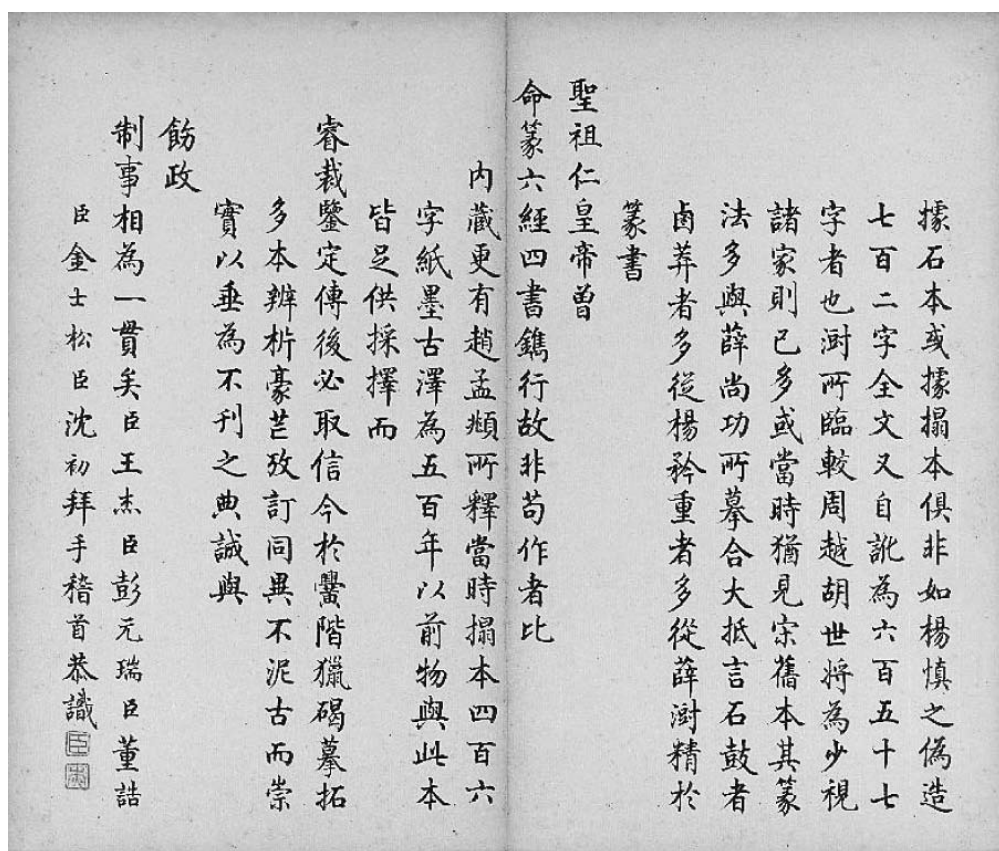 據石本或據搨本俱非如楊慎之偽造
七百二字全文又自訛為六百五十七
字者也澍所臨較周越胡世將為少視
諸家則已多或當時猶見宋舊本其篆
法多與薛尚功所摹合大抵言石鼓者
鹵莽者多從楊矜重者多從薛澍精於
篆書
聖祖仁皇帝曾
命篆六經四書鐫行故非苟作者比
内藏更有趙孟頫所釋當時搨本四百六
字紙墨古澤為五百年以前物與此本
皆足供採擇而
睿裁鑒定傳後必取信今於黌階獵碣摹拓
多本辨析豪芒攷訂同異不泥古而崇
實以垂為不刊之典誠與
飭政
制事相為一貫矣臣王杰臣彭元瑞臣董誥
臣金士松臣沈初拜手稽首恭識